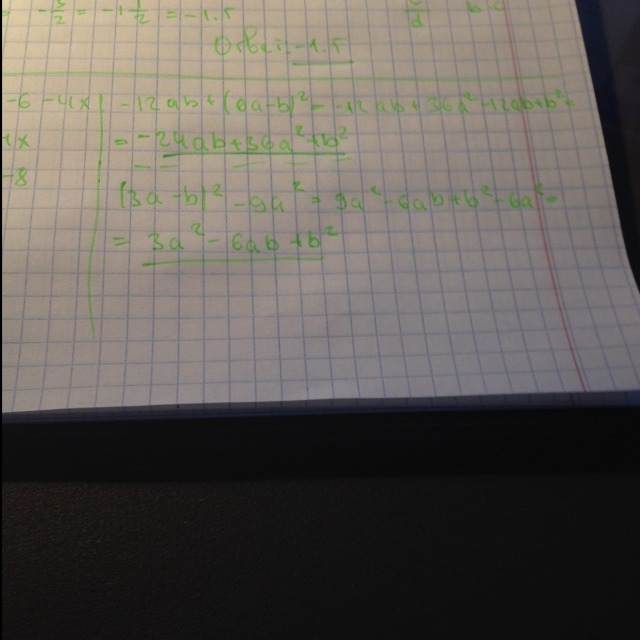 = -1 1/2 = -1.5
Ответ: -1.5
-6 -4x
-12ab+(6a-b)² = -12ab + 36a² -12ab+b² =
= -24ab+36a²+b²
-8
(3a-b)² -6a² = 9a² -6ab+b² -6a² =
= 3a² -6ab +b²